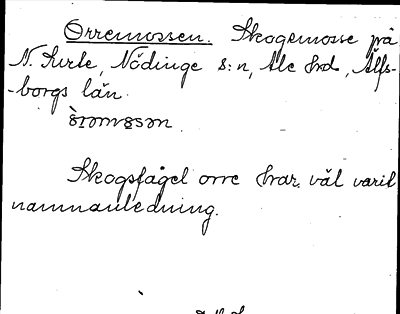 Orremossen. Skogemosse på
N. Surle, Nödinge s:n, Ale hrd, Älfs-
-borgs län.

Skogsfågel orre har väl varit
namnanledning.